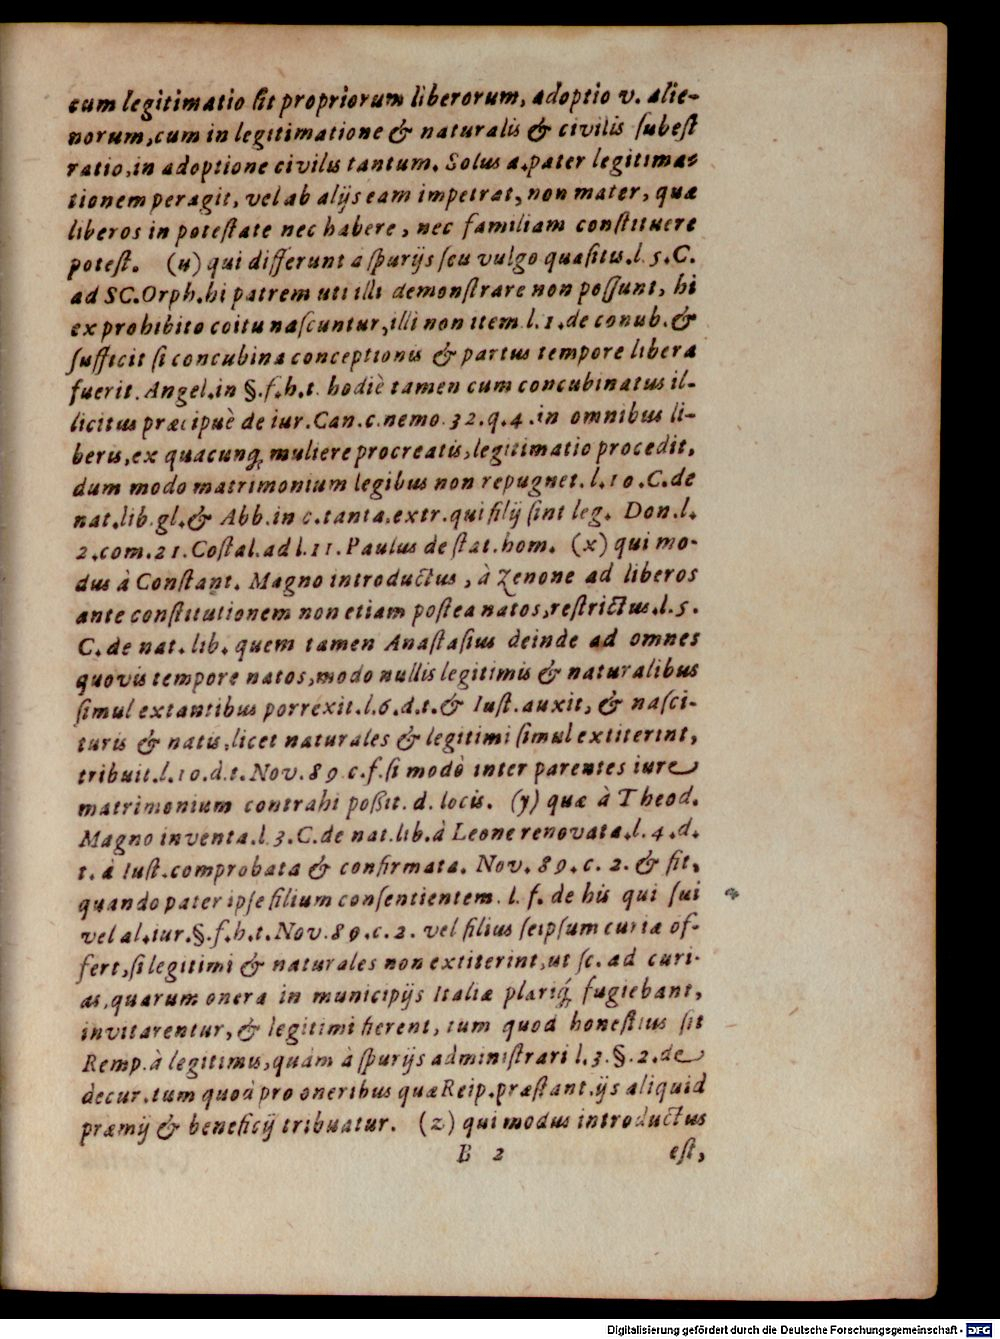 cum legitimatio sit propriorum liberorum, adoptio v. alie-
norum, cum in legitimatione & naturalis & civilis subest
ratio, in adoptione civilis tantum. Solus a. pater legitima-
tionem peragit, vel ab alijs eam impetrat, non mater, quæ
liberos in potestate nec habere, nec familiam constituere
potest. (u) qui differunt a spurijs seu vulgo quæsitis. l. 5. C.
ad SC. Orph. hi patrem uti illi demonstrare non possunt, hi
ex prohibito coitu nascuntur, illi non item l. 1. de conub. &
sufficit si concubina conceptionis & partus tempore libera
fuerit. Angel. in §. f. h. t. hodiè tamen cum concubinatus il-
licitus præcipuè de iur. Can. c. nemo. 32. q. 4. in omnibus li-
beris, ex quacunq; muliere procreatis, legitimatio procedit,
dum modo matrimonium legibus non repugnet. l. 10. C. de
nat. lib. gl. & Abb. in c. tanta. extr. qui filij sint leg. Don. l.
2. com. 21. Costal. ad l. 11. Paulus de stat. hom. (x) qui mo-
dus à Constant. Magno introductus, à Zenone ad liberos
ante constitutionem non etiam postea natos, restrictus. l. 5.
C. de nat. lib. quem tamen Anastasius deinde ad omnes
quovis tempore natos, modo nullis legitimis & naturalibus
simul extantibus porrexit. l. 6. d. t. & Iust. auxit, & nasci-
turis & natis, licet naturales & legitimi simul extiterint,
tribuit. l. 10. d. t. Nov. 89 c. f. si modò inter parentes iure
matrimonium contrahi poßit. d. locis. (y) quæ à Theod.
Magno inventa. l. 3. C. de nat. lib. à Leone renovata. l. 4. d.
t. à Iust. comprobata & confirmata. Nov. 89. c. 2. & fit,
quando pater ipse filium consentientem. l. f. de his qui sui
vel al. iur. §. f. h. t. Nov. 89. c. 2. vel filius seipsum curiæ of-
fert, si legitimi & naturales non extiterint, ut sc. ad curi-
as, quarum onera in municipijs Italiæ pleriq; fugiebant,
invitarentur, & legitimi fierent, tum quod honestius sit
Remp. à legitimis, quàm à spurijs administrari l. 3. §. 2. de
decur. tum quod pro oneribus quæ Reip. præstant. ijs aliquid
præmij & beneficij tribuatur. (z) qui modus introductus
B 2 est,
Digitalisierung gefördert durch die Deutsche Forschungsgemeinschaft - DFG